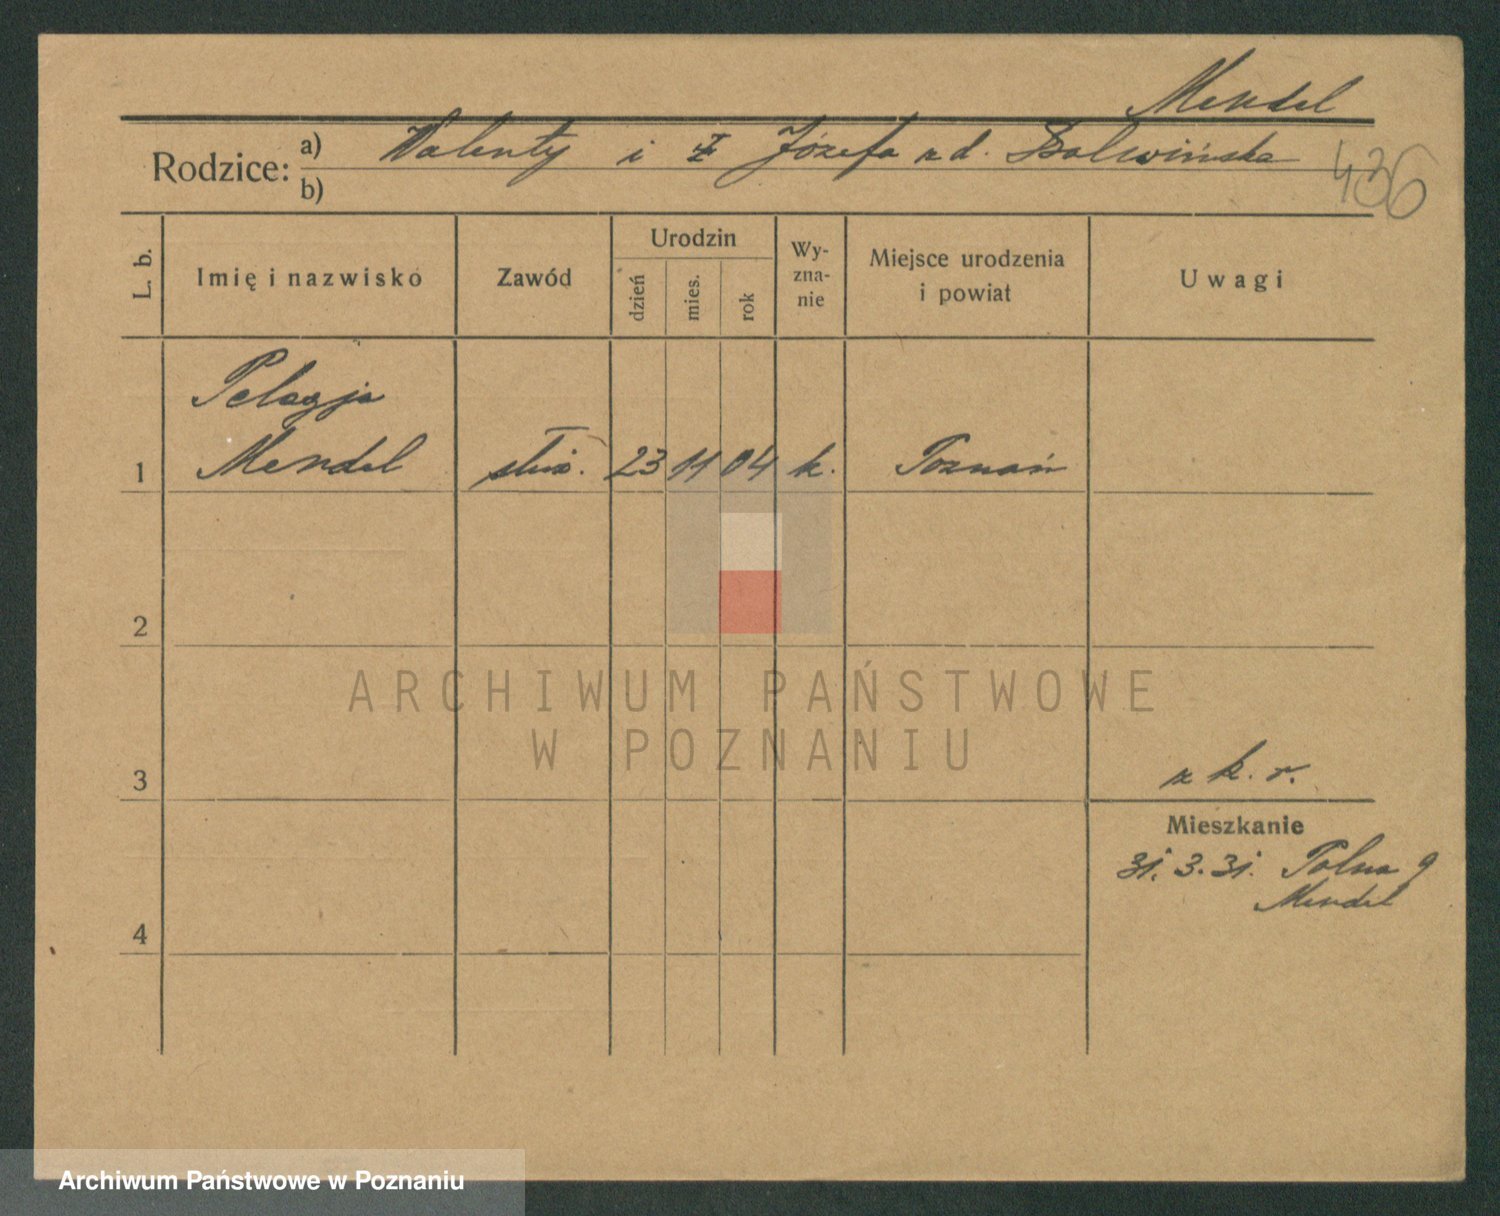 Mendel
Rodzice: a) Walenty i Józefa z d.
b)
436
L. b.
Imię i nazwisko
Zawód
Urodzin
dzień
mies.
rok
Wy-
zna-
nie
Miejsce urodzenia
i powiat
Uwagi
Pelagja
1 Mendel służ. 23 11 04 k. Poznań
2
3
z k. r.
Mieszkanie
31. 3. 31. Polna 9
Mendel
4
ARCHIWUM PAŃSTWOWE
W POZNANIU
Archiwum Państwowe w Poznaniu